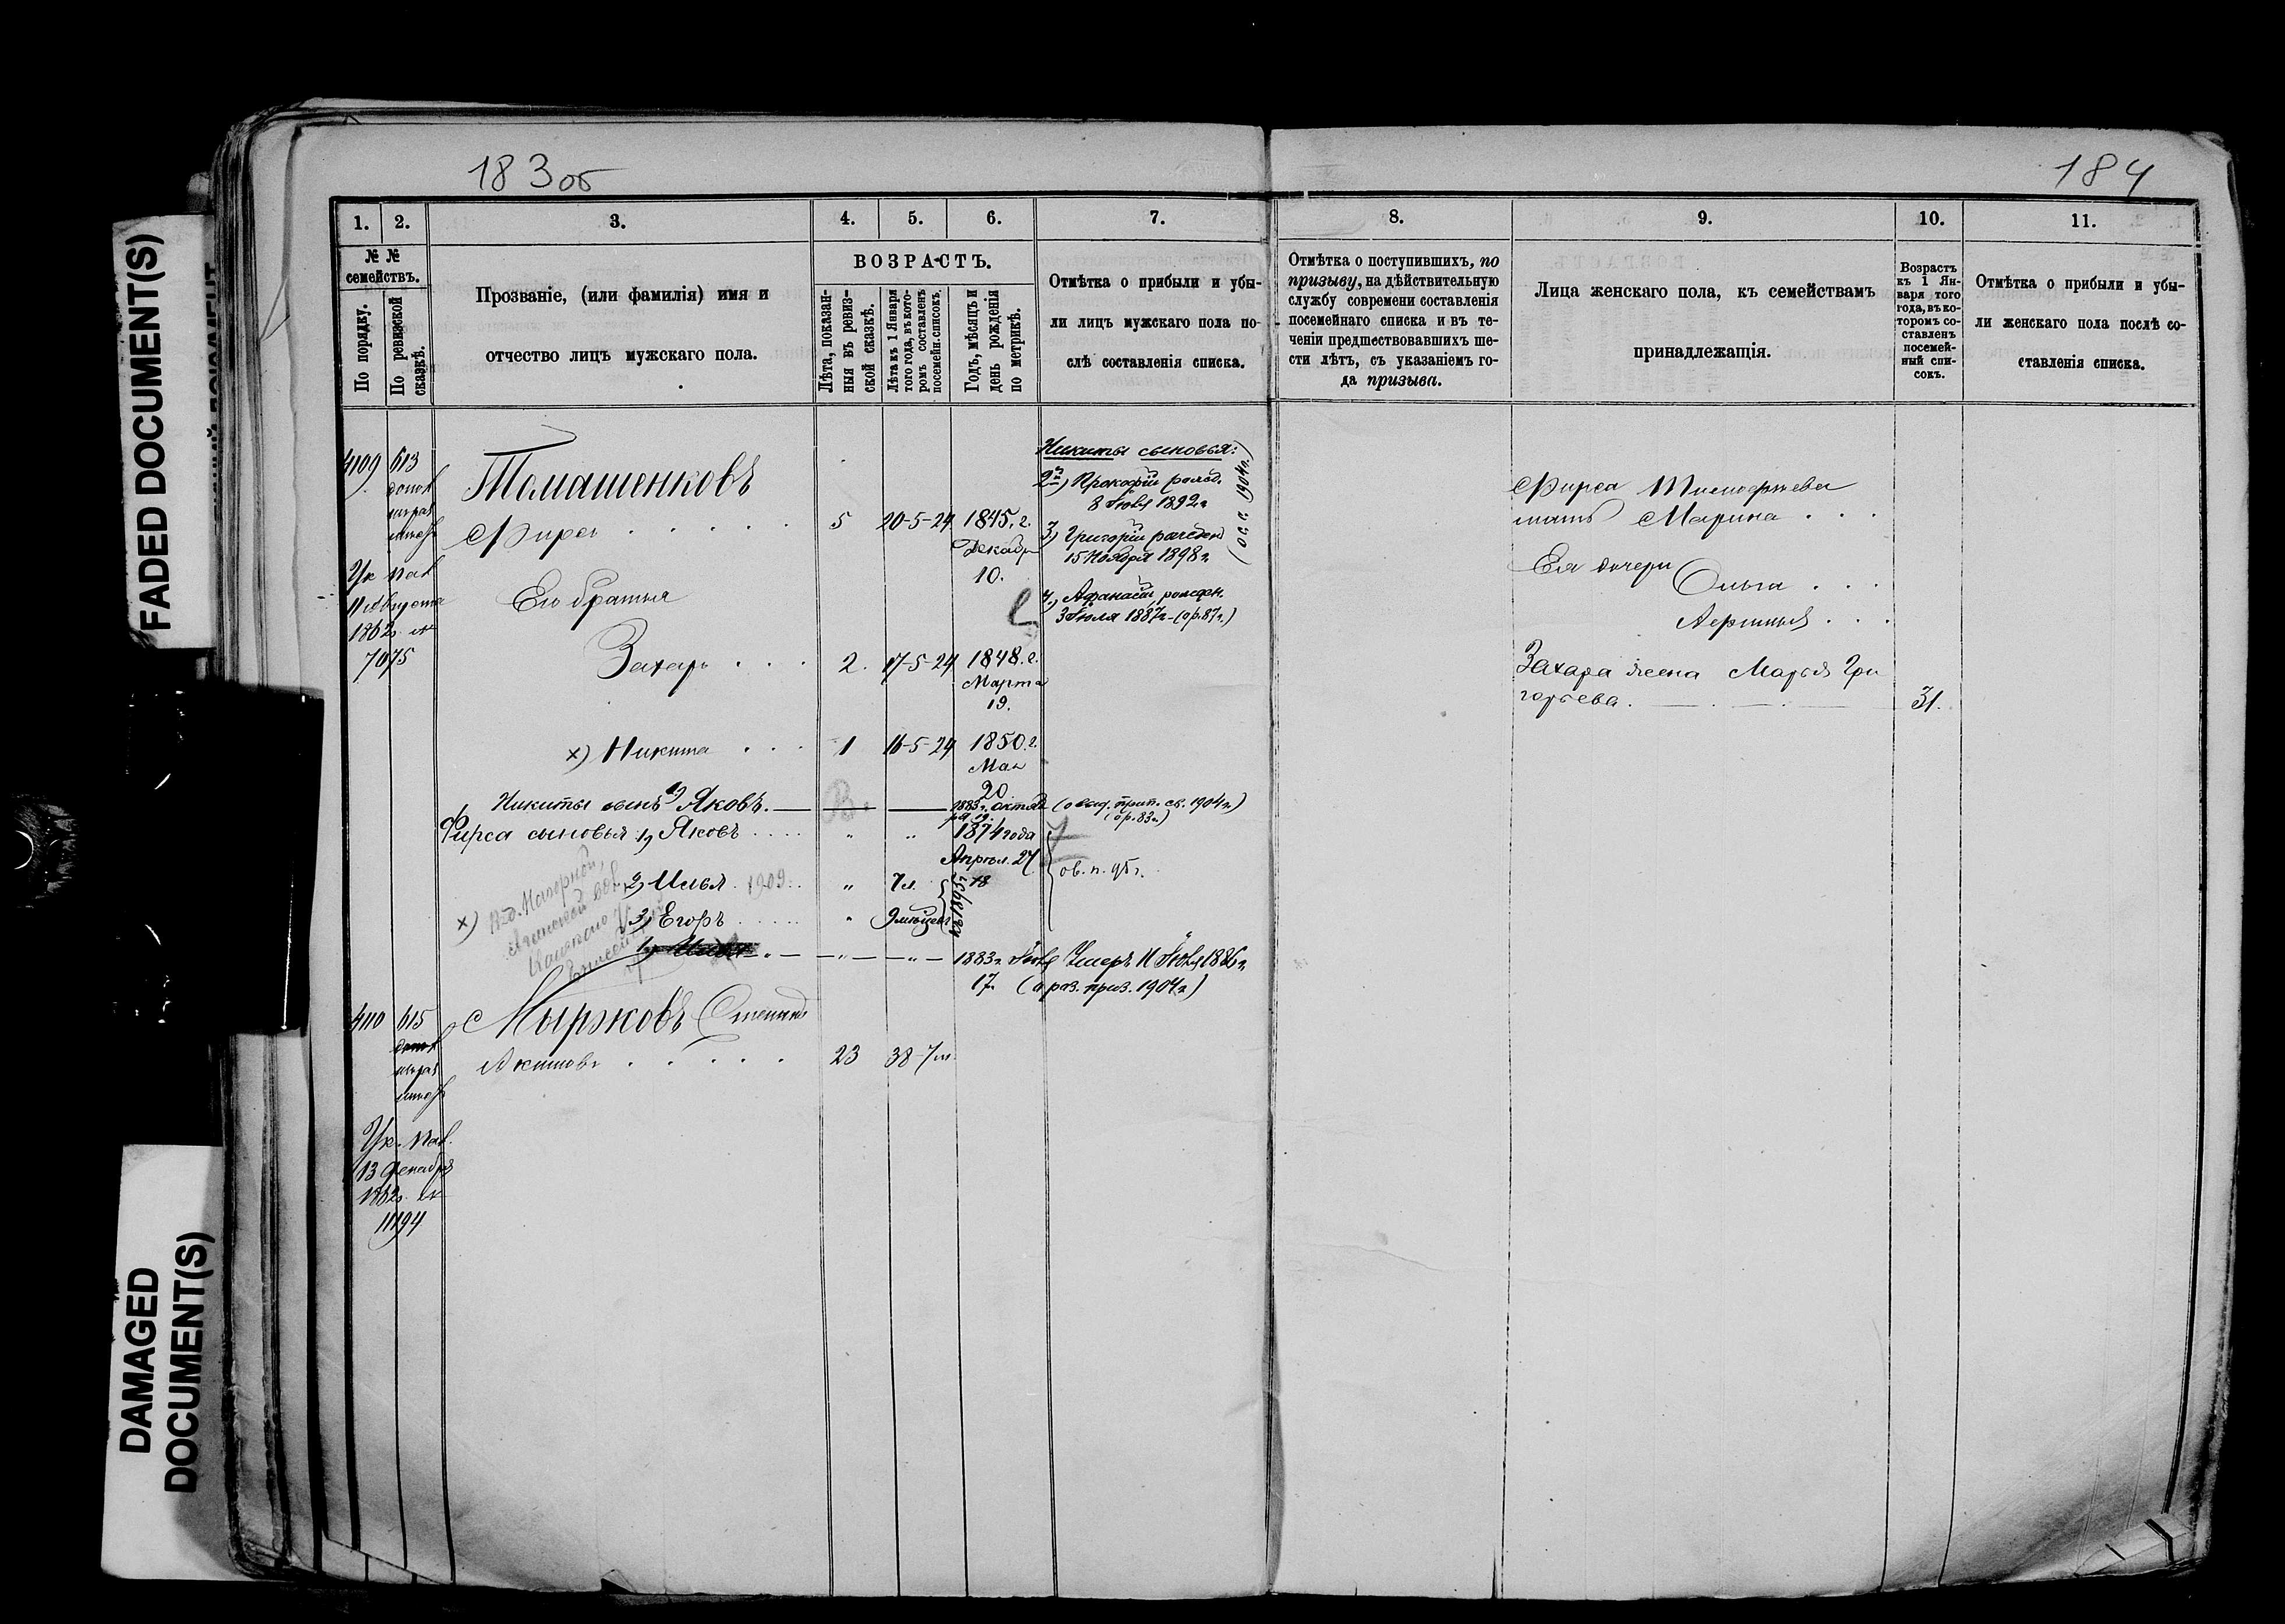 FADED DOCUMENT(S)
DAMAGED
DOCUMENT(S)
183об
184
1.
2.
3.
4.
5.
6.
7.
8.
9.
10.
11.
№ №
семействъ.
По порядку.
По ревизской
сказкѣ.
Прозваніе, (или фамилія) имя и
отчество лицъ мужскаго пола.
ВОЗРАСТЪ.
Лѣта, показан-
ныя въ ревиз-
ской сказкѣ.
Лѣта къ 1 Января
того года, въ кото-
ромъ составленъ
посемейн. списокъ.
Годъ, мѣсяцъ и
день рожденія
по метрикѣ.
Отмѣтка о прибыли и убы-
ли лицъ мужскаго пола по-
слѣ составленія списка.
Отмѣтка о поступившихъ, по
призыву, на дѣйствительную
службу современи составленія
посемейнаго списка и въ те-
ченіи предшествовавшихъ ше-
сти лѣтъ, съ указаніемъ го-
да призыва.
Лица женскаго пола, къ семействамъ
принадлежащія.
Возрастъ
къ 1 Ян-
варя того
года, въ ко-
торомъ со-
ставленъ
посемей-
ный спи-
сокъ.
Отмѣтка о прибыли и убы-
ли женскаго пола послѣ со-
ставленія списка.
4109
613
Томашенковъ
Фирсъ
5
20-5-24
1845. г.
Декабр
10.
Никиты сыновья:
2й) Прокофій рожд.
8 Іюля 1892 г.
3) Григорій рожден
15 Ноября 1898 г.
(о с. с. 1904 г.)
4) Афанасій рожден.
3 Іюля 1887 г. (ор. 87 г.)
Фирса Тимофѣева
мать Марина
Ея дочери Ольга
Аксинья
Ук Каз
11 Августа
1862 №
7075
Его братья
Захаръ
2.
17-5-24
1848. г.
Марта
19.
Захара жена Марья Гри
горьева.
31.
х) Никита
1
16-5-24
1850. г.
Мая
20
Никиты сынъ 1) Яковъ.
1883 г. октяб
ря 19.
(о выд. прип. св. 1904 г.)
(ор. 83 г.)
Фирса сыновья 1) Яковъ
"
"
1874 года
Апрѣл. 27
2) Илья 1909
"
7 л.
18
ов. п. 95 г.
х)
3) Егоръ
"
9 мѣсцевъ
1) Илья
"
"
1883 г. Іюля
17.
Умеръ 11 Іюля 1886 г.
(о раз. приз. 1904 г.)
4110
615
Мырзковъ Степанъ
Акимовъ
23
38-7 м
Ук. Каз.
13 Декабря
1862 №
11194